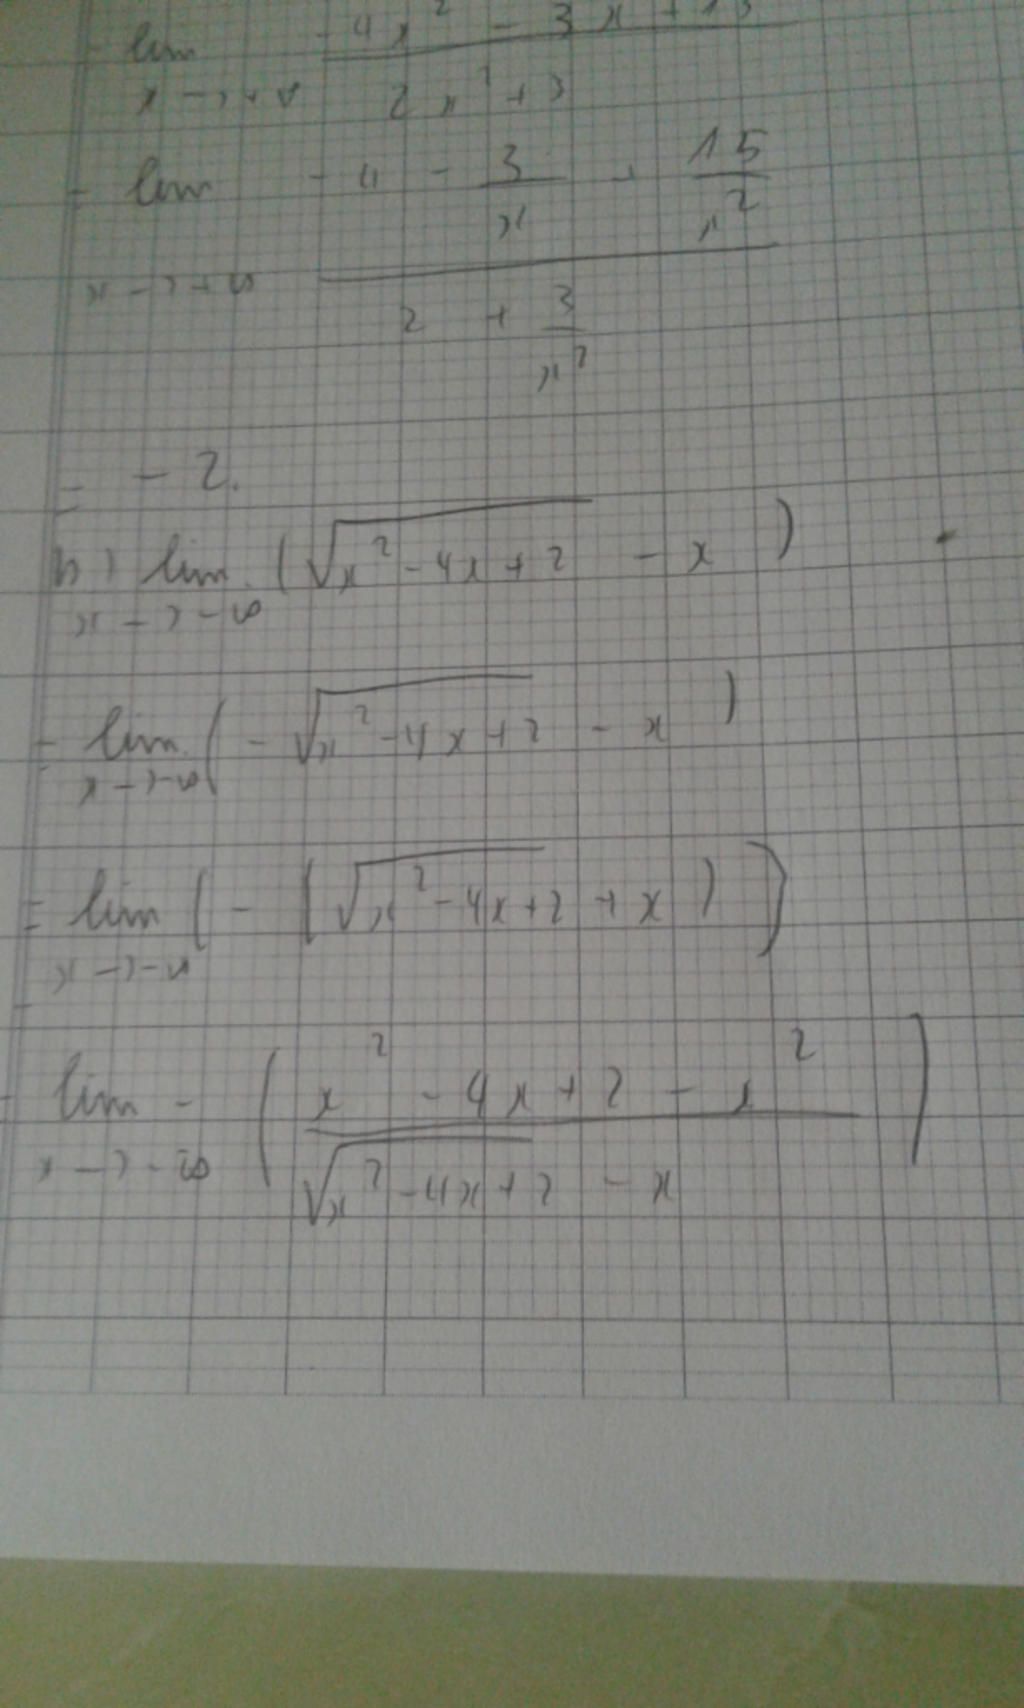 lim -4x² - 3x + 15
x → +∞ 2x² + 3
= lim -4 - 3/x + 15/x²
x → +∞ 2 + 3/x²
= -2.
b) lim (√x² - 4x + 2 - x)
x → -∞
= lim (-√x² - 4x + 2 - x)
x → -∞
= lim (-(√x² - 4x + 2 + x))
x → -∞
= lim - (x² - 4x + 2 - x²)
x → -∞ √x² - 4x + 2 - x